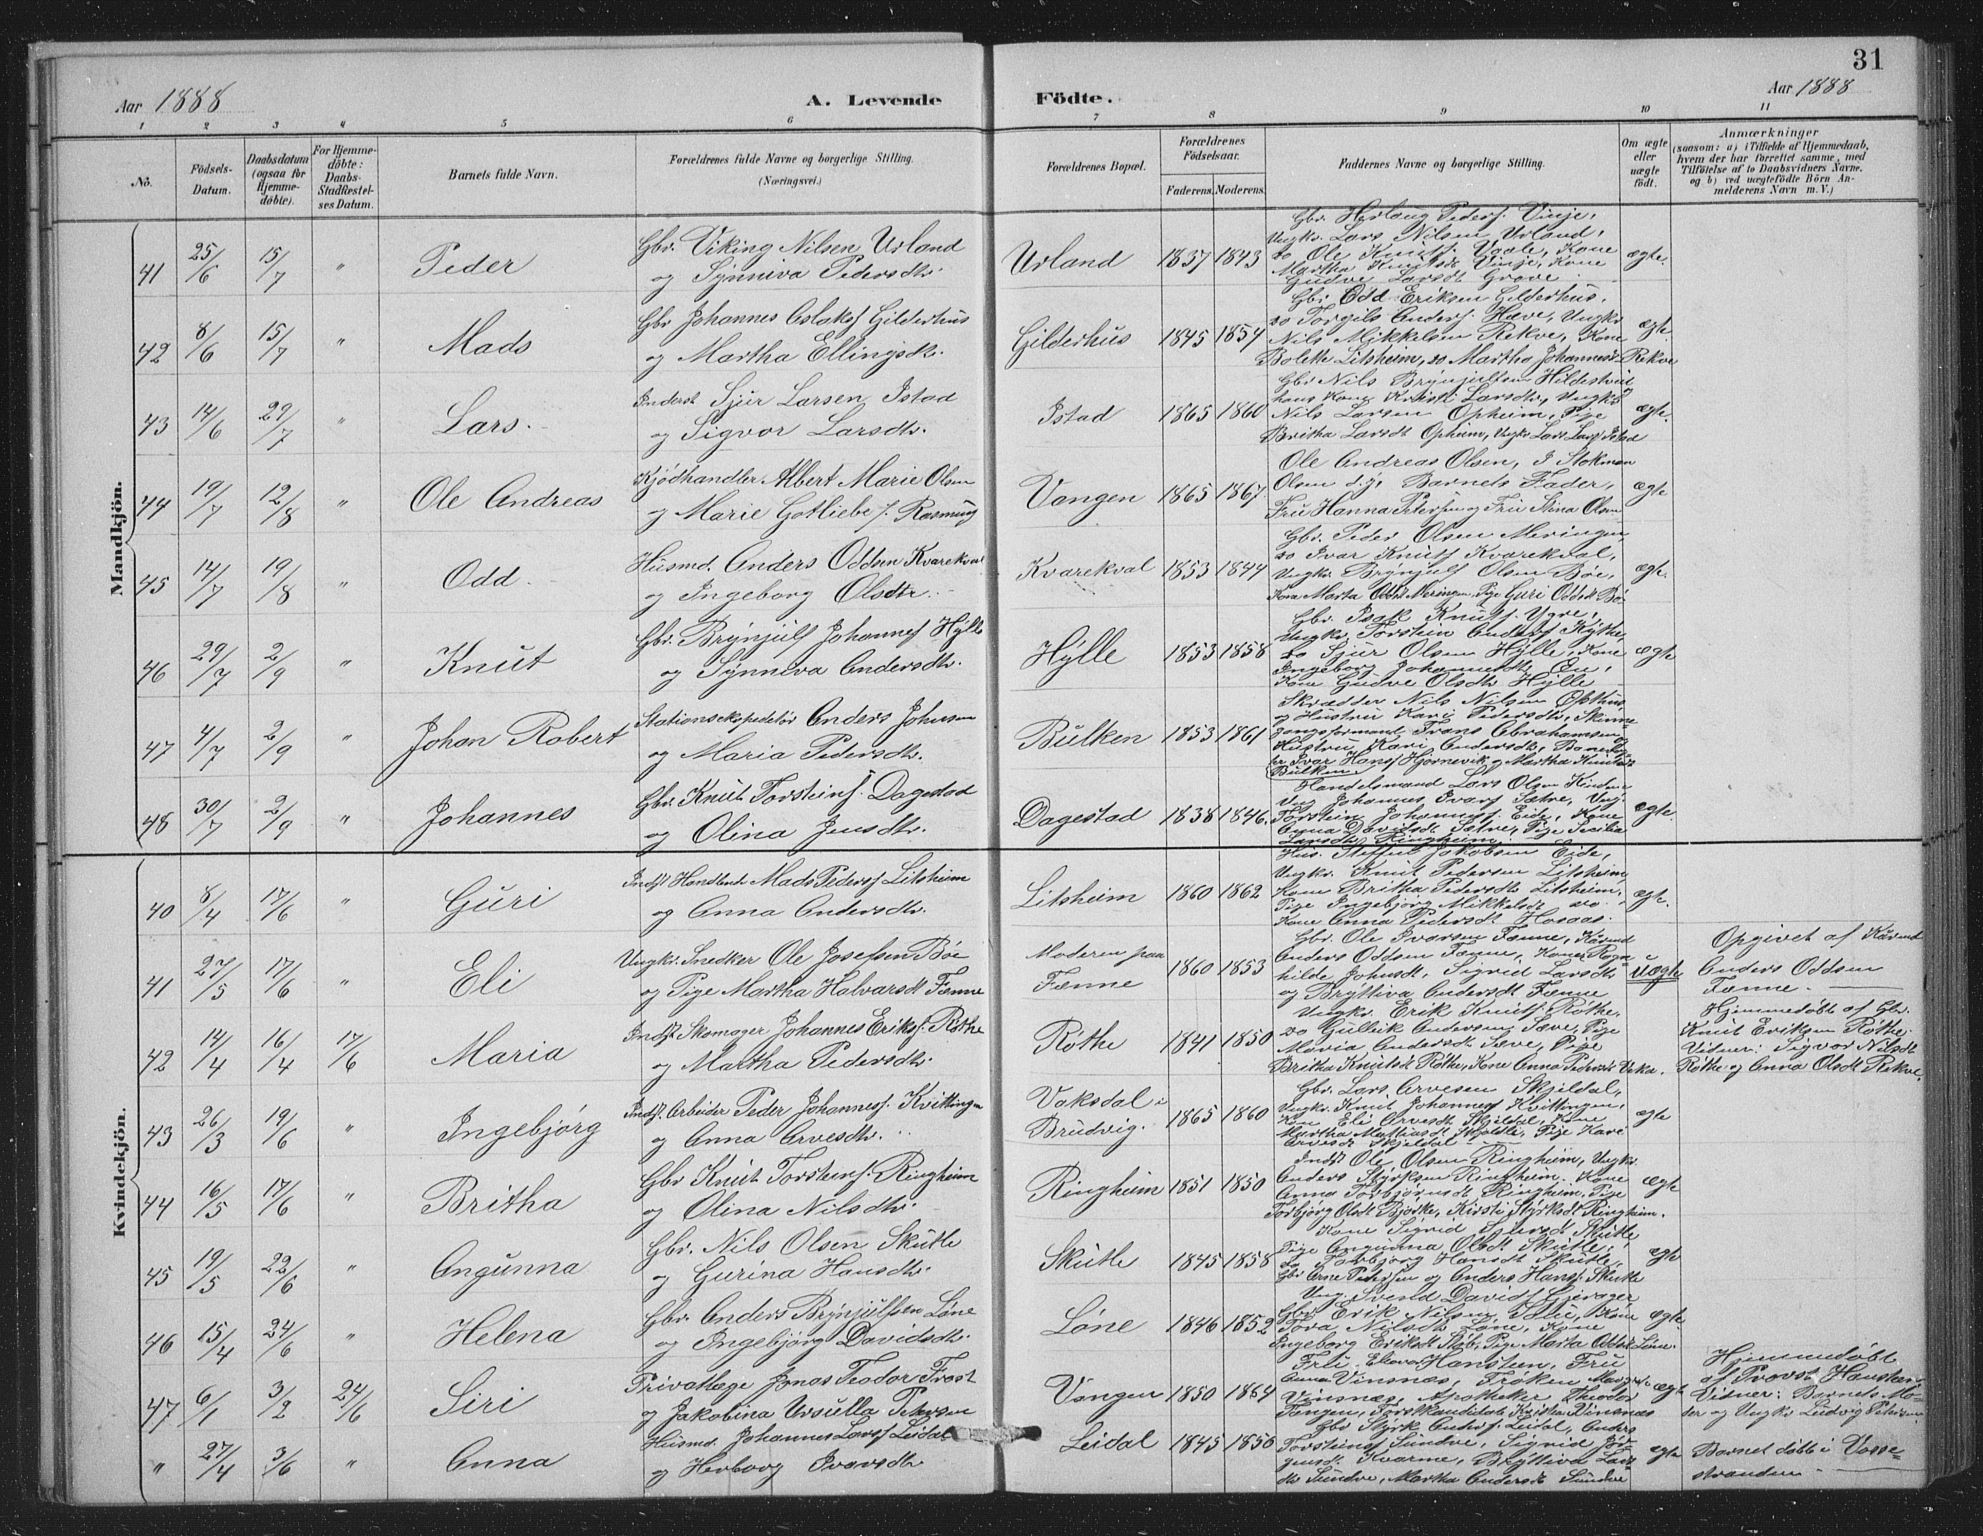 31
Aar 1888
A. Levende
Födte.
Aar 1888
1 2 3 4 5 6 7 8 9 10 11
No.
Födsels-
Datum.
Daabsdatum
(ogsaa for
Hjemme-
døbte).
For Hjemme-
døbte:
Daabs-
Stadfæstel-
ses Datum.
Barnets fulde Navn.
Forældrenes fulde Navne og borgerlige Stilling.
(Næringsvei.)
Forældrenes Bopæl.
Forældrenes
Födselsaar.
Faderens. Moderens.
Faddernes Navne og borgerlige Stilling.
Om ægte
eller
uægte
født.
Anmærkninger
(saasom: a) i Tilfælde af Hjemmedaab,
hvem der har forrettet samme, med
Tilføielse af to Daabsvidners Navne,
og b) ved uægtefödte Börn An-
melderens Navn m. V.)
Mandkjön.
41 25/6 15/7 " Peder
Gbr. Viking Nilsen Urland
og Synniva Pedersdtr.
Urland 1837 1843
Gbr. Herlaug Peders. Vinje,
Ungkr. Lars Nilsen Urland,
do Ole Knuts. Vaale, Kone
Martha Knutsdt Vinje, Kone
Gudve Larsdt Grove
ægte.
42 8/6 15/7 " Mads
Gbr Johannes Aslaks. Gilderhus
og Martha Ellingsdtr.
Gilderhus 1845 1854
Gbr Odd Eriksen Gilderhus,
do Torgils Anders. Hæve, Ungkr
Nils Mikkelsen Rekve, Kone
Bolette Litsheim, do Martha Johannesdt Rekve
ægte.
43 14/6 29/7 " Lars.
Inderst Sjur Larsen Istad
og Sigvor Larsdtr.
Istad 1865 1860
Gbr Nils Brynjulfsen Hildestveit
hans Kone Kristi Larsdtr, Ungkr
Nils Larsen Opheim, Pige
Britha Larsdt Opheim, Ungkr Lars Lars. Istad
ægte.
44 19/7 12/8 " Ole Andreas
Kjødhandler Albert Marie Olsen
og Marie Gotliebe f. Rasmus
Vangen 1865 1867.
Ole Andreas Olsen, J Stokman
Olsen d.y., Barnets Fader,
Fru Hanna Petersen og Fru Nina Olsen
ægte
45 14/7 19/8 " Odd.
Husmd. Anders Oddsen Kvarekval
og Ingeborg Olsdtr.
Kvarekval 1853 1844
Gbr. Peder Olsen Meringen
do Ivar Knuts. Kvarekval,
Ungkr Brynjulf Olsen Bøe,
Kone Marta Oddsdt Meringen, Pige Guri Oddsdt Bø
ægte.
46 29/7 2/9 " Knut
Gbr. Brynjulf Johannes. Hylle
og Synneva Andersdtr.
Hylle 1853 1858
Gbr. Isak Knuts. Ygre,
Ungkr Torstein Anders. Kythe
do Sjur Olsen Hylle, Kone
Ingeborg Johannesdtr
Kone Gudve Olsdtr Hylle
ægte
47 4/7 2/9 " Johan Robert
Stationsekspeditør Anders Johnsen
og Maria Pedersdtr.
Bulken 1853 1861
Skrædder Nils Nilsen Opthus
og Hustru Kari Pedersdtr, Skinne-
gangsformand Frans Abrahamsen og
Hustru Kari Andersdtr, Banevog-
ter Ivar Hans. Hjørnevik og Martha Knutsdt
Bulken
48 30/7 2/9 " Johannes
Gbr Knut Torsteins. Dagestad
og Olina Jensdtr.
Dagestad 1838 1846.
Handelsmand Lars Olsen Kinden
Ung Johannes Ivars. Sætre, Ung.
Torstein Johannes. Eide, Kone
Anna Davidsdt Sætre, Pige Secilia
Larsdtr Ringheim
ægte.
Kvindekjön.
40 8/4 17/6 " Guri
Indst Handlende Mads Peders. Litsheim
og Anna Andersdtr.
Litsheim 1860 1862
Hus. Steffen Jakobsen Eide,
Ungkr. Knut Pedersen Litsheim
Kone Britha Pedersdt Litsheim,
Pige Ingebjørg Mikkelsdt do
Kone Anna Pedersdt Hosaas.
ægte.
41 27/5 17/6 " Eli
Ungkr. Snedker Ole Josefsen Bøe
og Pige Martha Halvarsdt Fænne
Moderen paa
Fænne
1860 1853
Gbr. Ole Ivarsen Fænne, Kaarmd
Anders Oddsen Fænne, Kone Ragn-
hilde Johnsdt, Sigrid Larsdtr
og Bryttiva Andersdt Fænne
uægte
Opgivet af Kaarmd
Anders Oddsen
Fænne.
42 14/4 16/4 17/6 Maria
Indst Skomager Johannes Eriks. Røthe
og Martha Pedersdtr.
Røthe 1841 1850
Ungkr. Erik Knuts. Røthe,
do Gullik Andersen Sæve, Pige
Maria Andersdt Sæve, Pige
Britha Knutsdt Røthe, Kone Anna Pedersdt Veka.
Hjemmedøbt af Gbr.
Knut Eriksen Røthe.
Vidner: Sigvor Nilsdt
Røthe og Anna Olsdt Rekve.
43 26/3 19/6 " Ingebjørg
Indst. Arbeider Peder Johannes. Kvittingen
og Anna Arvesdtr.
Vaksdal i
Brudvig.
1865 1860
Gbr. Lars Arvesen Skjeldal,
Ungkr. Knut Johannes. Kvittingen,
Kone Eli Arvesdt Skjeldal, Kone
Martha Mathiasdt Skjelde, Pige Kari
Arvesdt Skjeldal
ægte
44 16/5 17/6 " Britha
Gbr Knut Torsteins. Ringheim
og Olina Nilsdtr.
Ringheim 1851 1850
Indst Ole Olsen Ringheim, Ungkr.
Anders Styrksen Ringheim, Kone
Anna Torbjørnsdt Ringheim, Pige
Torbjørg Olsdt Bjørke, Kirsti Styrksdt Ringheim.
ægte
45 19/5 22/6 " Angunna
Gbr. Nils Olsen Skutle
og Gurina Hansdtr.
Skutle 1845 1858
Kone Sigrid Sjursdt Skutle
Pige Angunna Olsdt Skutle,
do Torbjørg Hansdt Skutle,
Gbr Arne Pedersen og Anders Hans. Skutle
ægte
46 15/4 24/6 " Helena
Gbr. Anders Brynjulfsen Løne
og Ingebjørg Davidsdtr.
Løne 1846 1852
Ung Svend Davids. Gjerager
Gbr Erik Nilsen Istad, Kone
Tora Nilsdt Løne, Kone
Ingeborg Eriksdt Støb, Pige Marta Oddsdt Løne.
ægte
47 6/1 3/2 24/6 Siri
Privatlæge Jonas Teodor Frost
og Jakobina Ursulla Petersen
Vangen 1850 1864
Fru Elevar Hansteen, Fru
Emma Vinsnæs, Frøken Margrete
Vinsnæs, Apotheker Theodor
Fangen, Forstkandidat Kristian Vinsnæs
ægte
Hjemmedøbt
af Provst Hansteen
Vidner: Barnets Mo-
der og Ungkr Ludvig Petersen
" 27/4 3/6 " Anna
Husmd. Johannes Lars. Leidal
og Herborg Ivarsdtr
Leidal 1845 1850
Gbr Styrk Anders. Leidal, Anders
Torsteins. Sundve, Sigrid Jør-
gensdt Kvarme, Bryttiva Lars-
dtr Sundve, Martha Andersdt Sundve
ægte
Barnet døbt i Vosse-
stranden